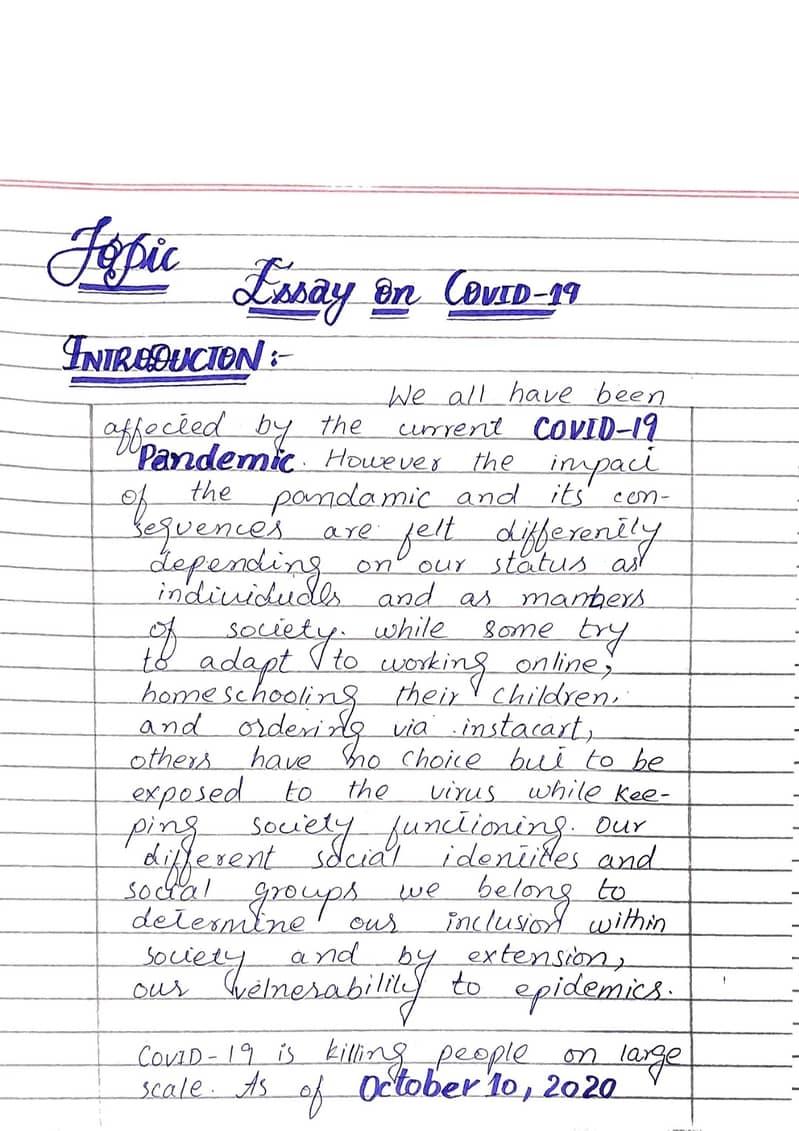 Topic
Essay on COVID-19
INTRODUCTON :-
We all have been
affected by the current COVID-19
Pandemic. However the impact
of the pandamic and its con-
sequences are felt differently
depending on our status as
individuals and as manbers
of society. while some try
to adapt to working online,
homeschooling their children,
and ordering via instacart,
others have no choice but to be
exposed to the virus while kee-
ping society functioning. our
different social identities and
social groups we belong to
determine our inclusion within
society and by extension,
our velnerability to epidemics.
COVID-19 is killing people on large
scale. As of October 10, 2020